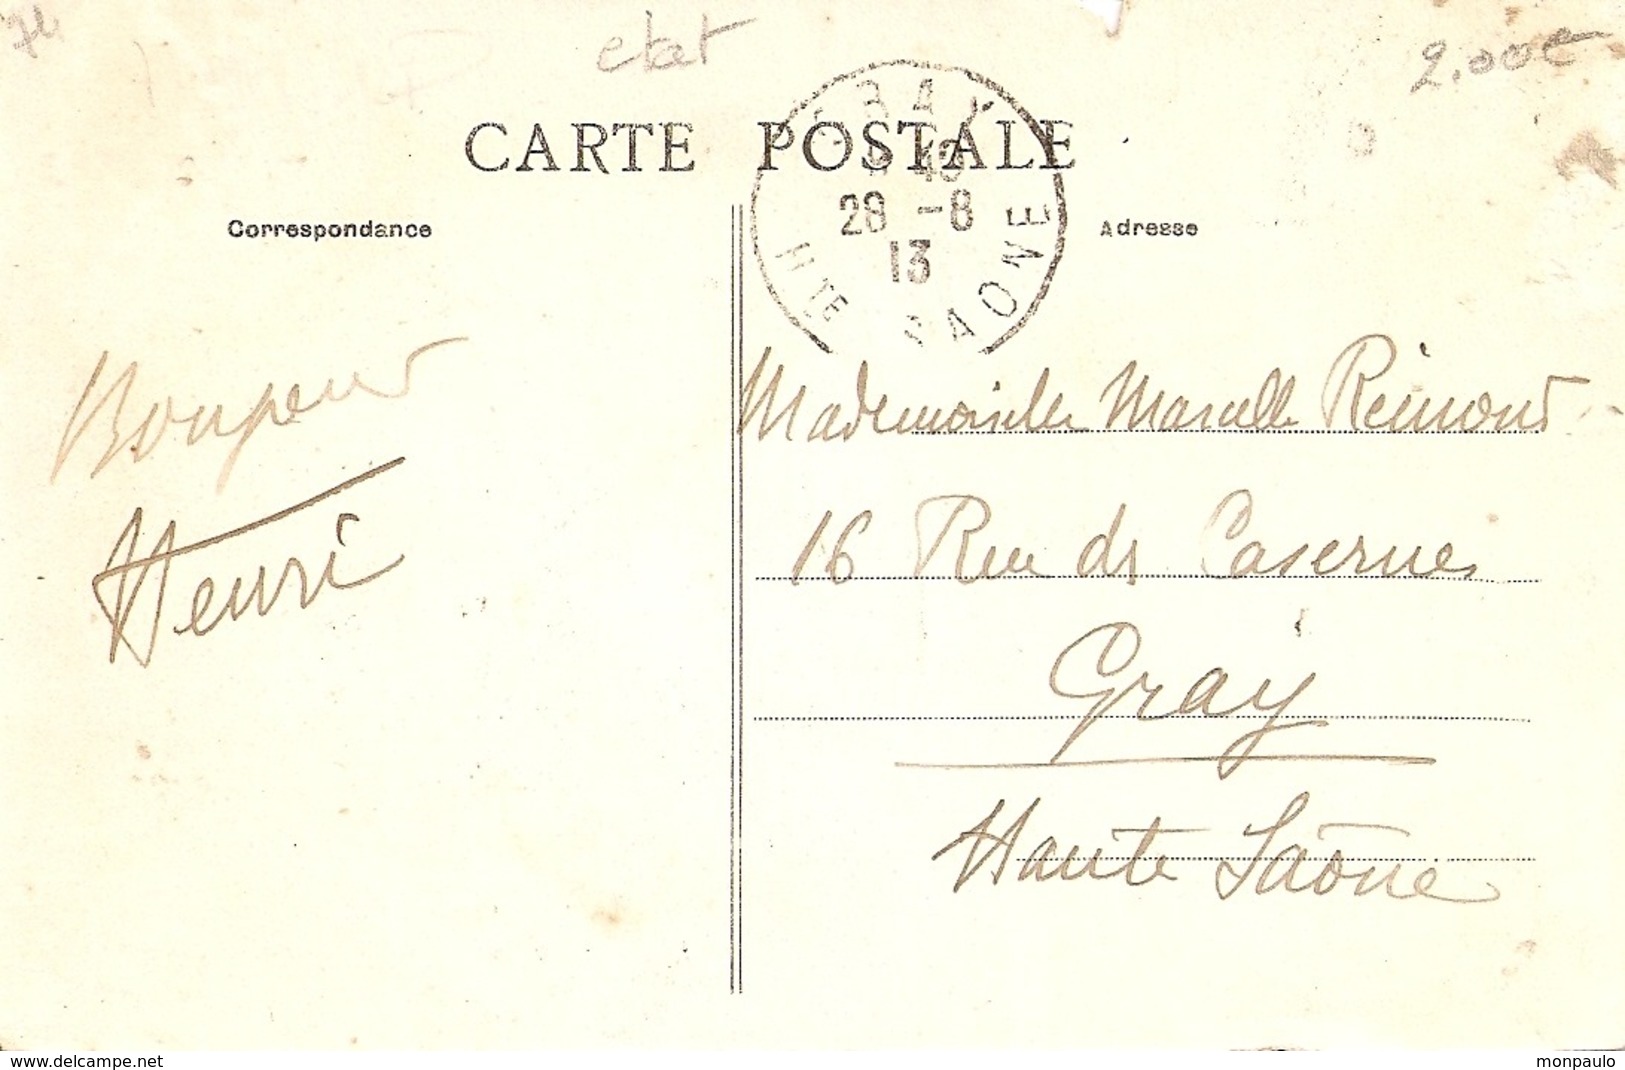 74
etat
2.00€
CARTE POSTALE
GRAY
18
28 -8
13
HTE SAONE
Correspondance
Adresse
Mademoiselle Marcelle Reimond
16 Rue des Casernes
Gray
Haute Saône
Henri
www.delcampe.net
monpaulo